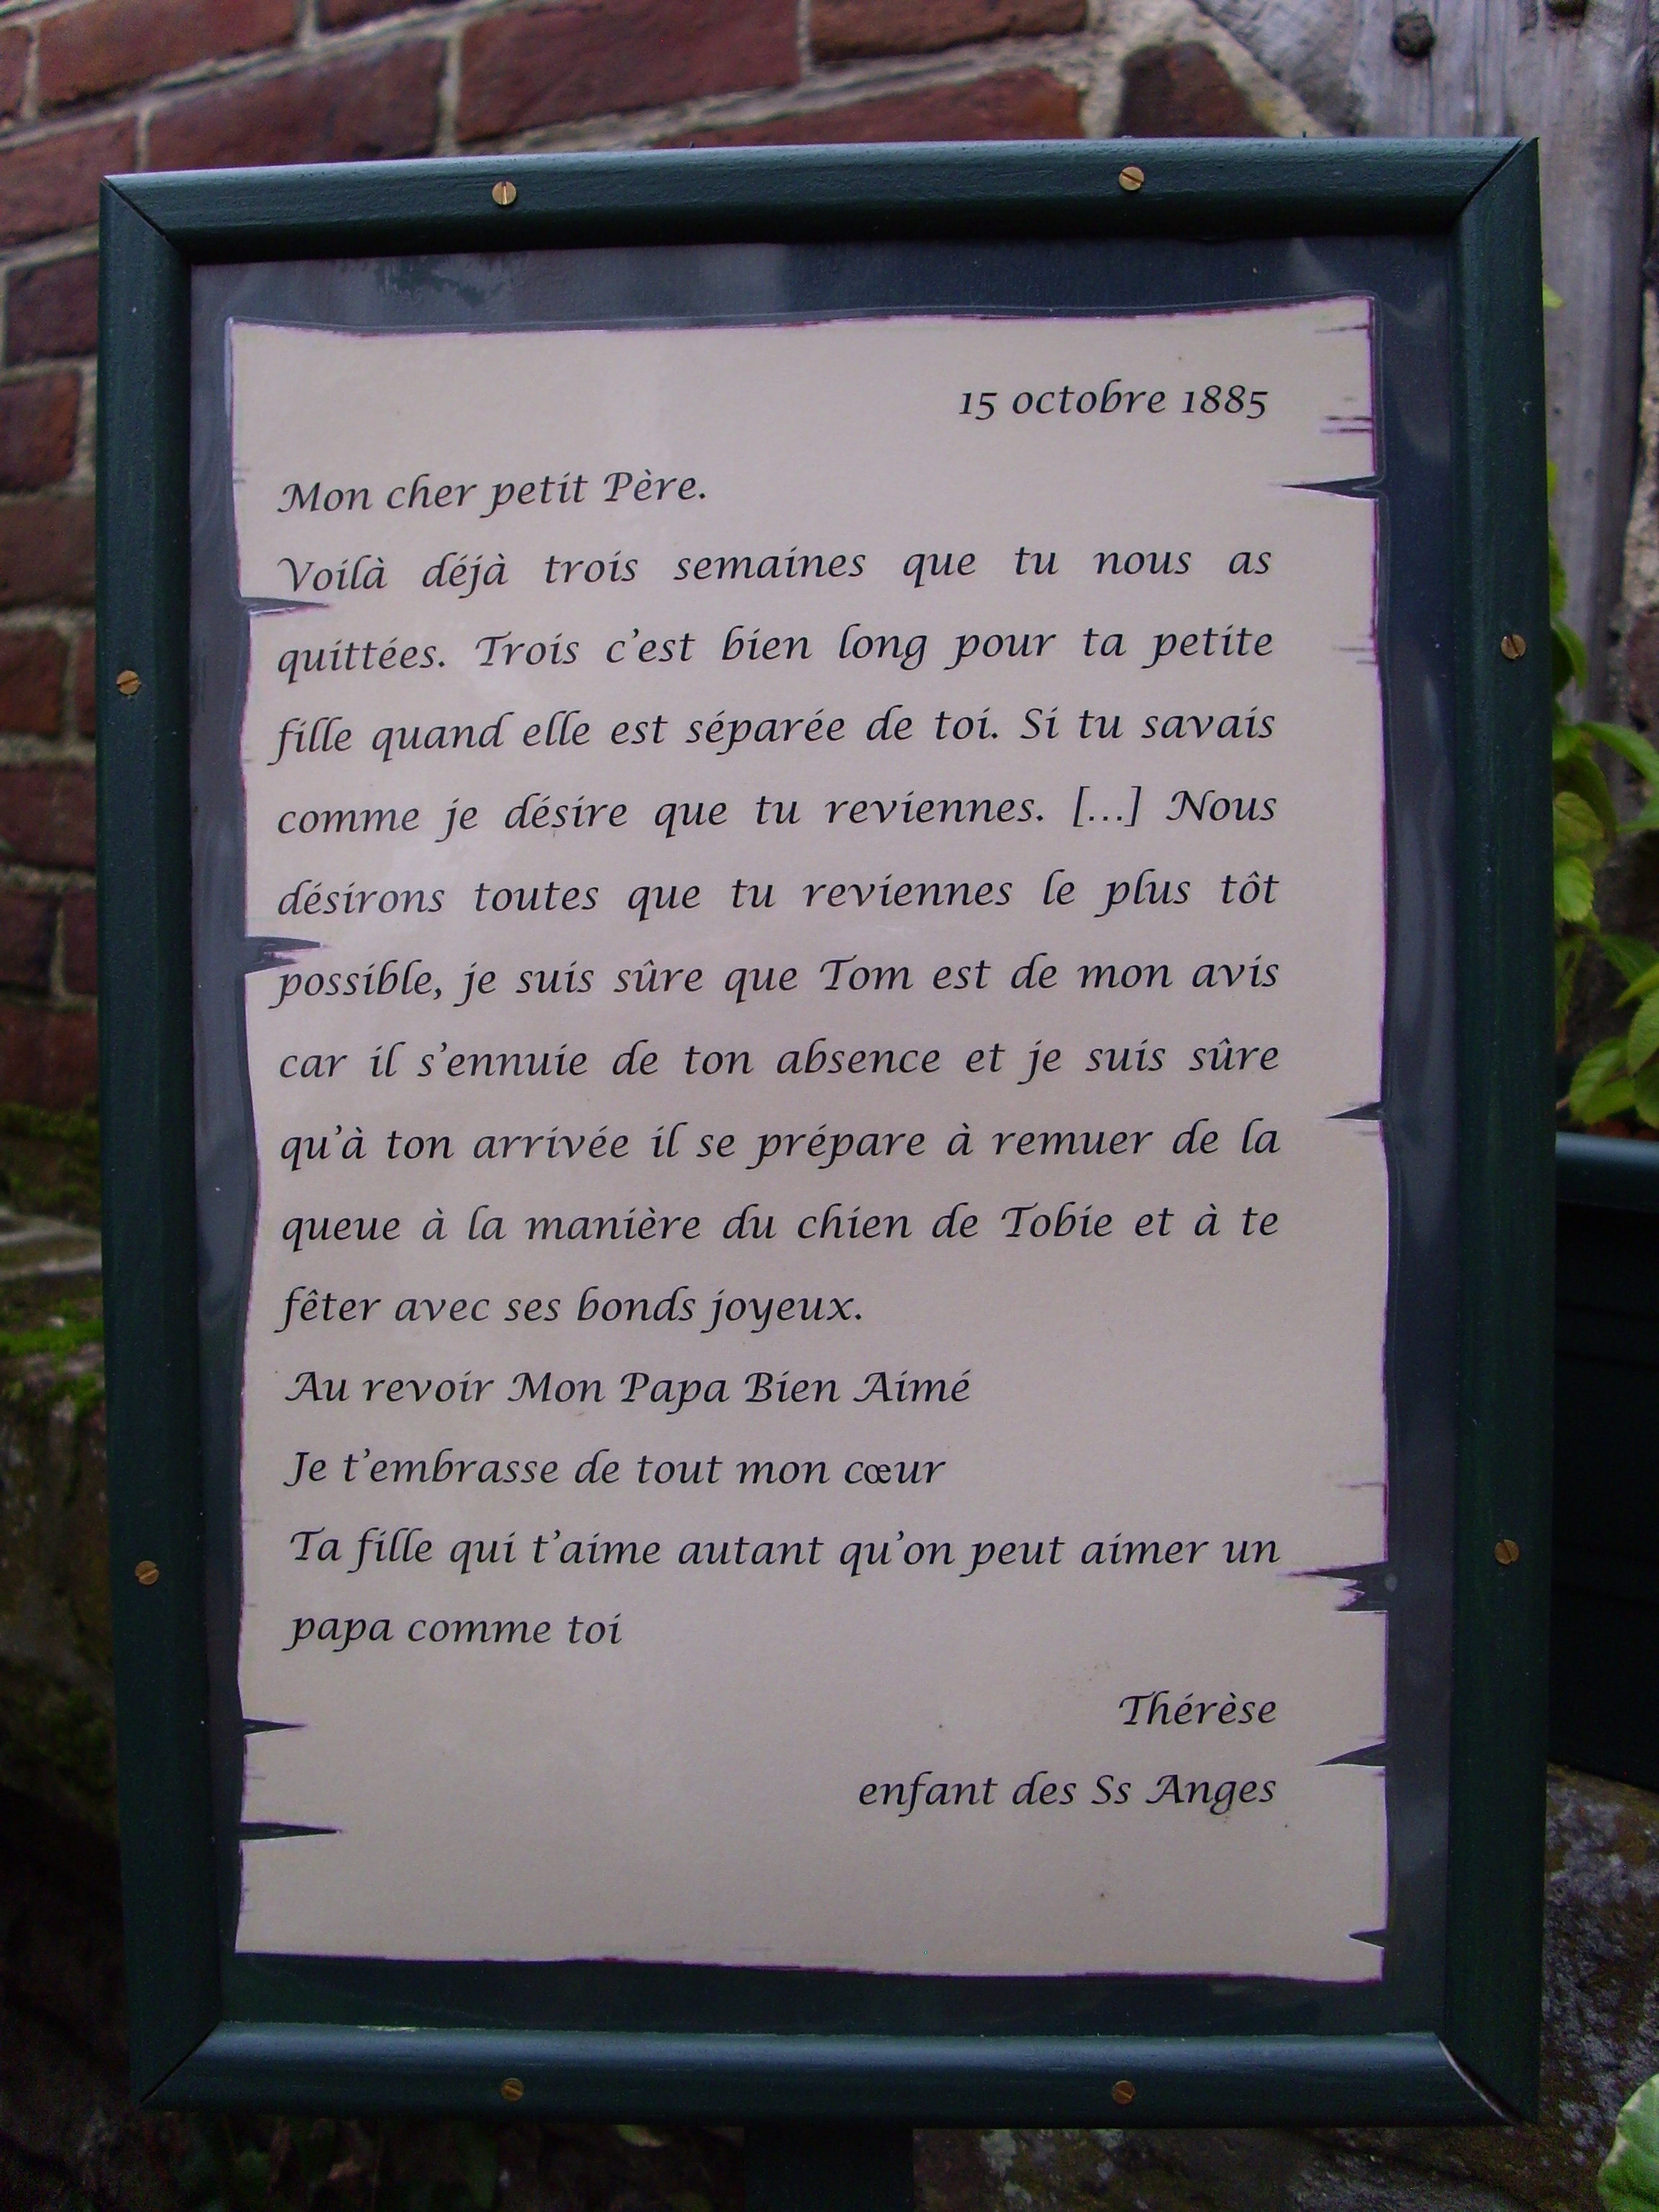 15 octobre 1885
Mon cher petit Père.
Voilà déjà trois semaines que tu nous as
quittées. Trois c'est bien long pour ta petite
fille quand elle est séparée de toi. Si tu savais
comme je désire que tu reviennes. [...] Nous
désirons toutes que tu reviennes le plus tôt
possible, je suis sûre que Tom est de mon avis
car il s'ennuie de ton absence et je suis sûre
qu'à ton arrivée il se prépare à remuer de la
queue à la manière du chien de Tobie et à te
fêter avec ses bonds joyeux.
Au revoir Mon Papa Bien Aimé
Je t'embrasse de tout mon cœur
Ta fille qui t'aime autant qu'on peut aimer un
papa comme toi
Thérèse
enfant des Ss Anges